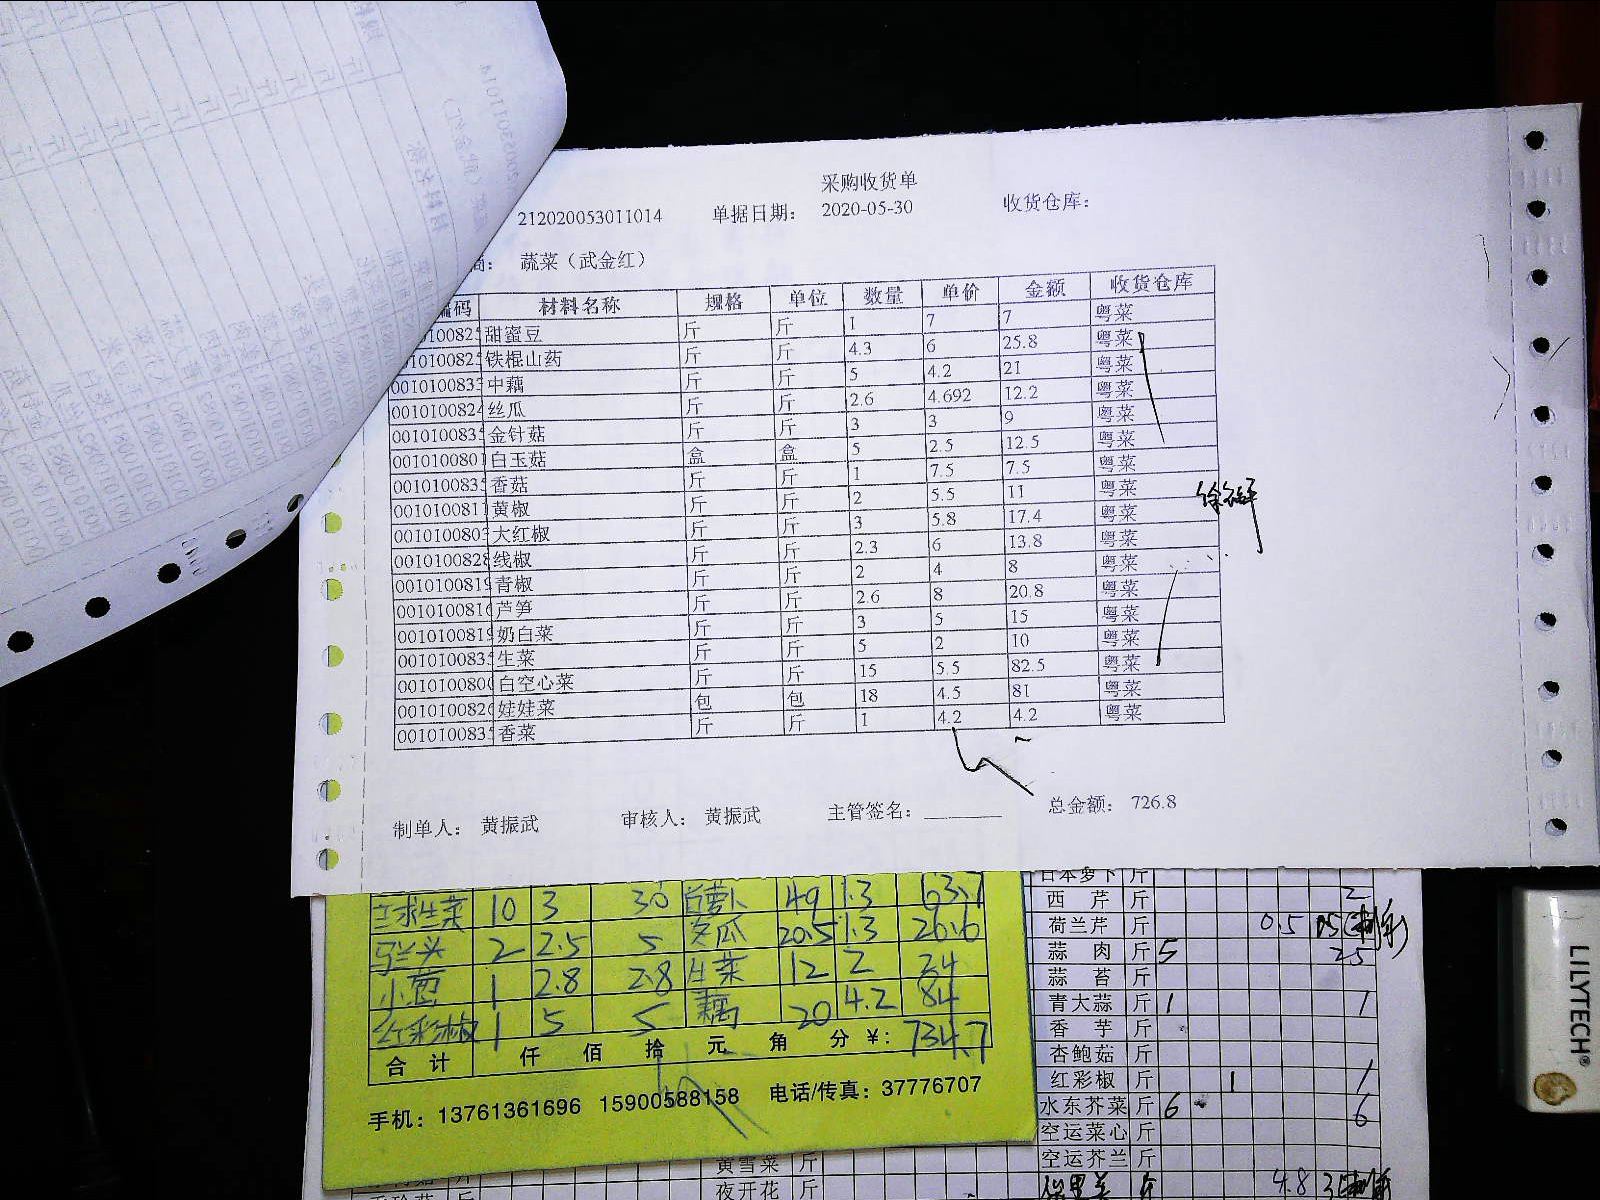 采购收货单
212020053011014 单据日期: 2020-05-30 收货仓库:
商: 蔬菜（武金红）
编码 材料名称 规格 单位 数量 单价 金额 收货仓库
甜蜜豆 斤 斤 1 7 7 粤菜
铁棍山药 斤 斤 4.3 6 25.8 粤菜
001010083 中藕 斤 斤 5 4.2 21 粤菜
001010082 丝瓜 斤 斤 2.6 4.692 12.2 粤菜
001010083 金针菇 斤 斤 3 3 9 粤菜
001010080 白玉菇 盒 盒 5 2.5 12.5 粤菜
001010083 香菇 斤 斤 1 7.5 7.5 粤菜
001010081 黄椒 斤 斤 2 5.5 11 粤菜
001010080 大红椒 斤 斤 3 5.8 17.4 粤菜
001010082 线椒 斤 斤 2.3 6 13.8 粤菜
001010081 青椒 斤 斤 2 4 8 粤菜
001010081 芦笋 斤 斤 2.6 8 20.8 粤菜
001010081 奶白菜 斤 斤 3 5 15 粤菜
001010083 生菜 斤 斤 5 2 10 粤菜
001010080 白空心菜 斤 斤 15 5.5 82.5 粤菜
001010082 娃娃菜 包 包 18 4.5 81 粤菜
001010083 香菜 斤 斤 1 4.2 4.2 粤菜
制单人: 黄振武 审核人: 黄振武 主管签名: 总金额: 726.8
球生菜 10 3 30 白萝卜 49 1.3 63.7
马兰头 2 2.5 5 冬瓜 20.5 1.3 26.6
小葱 1 2.8 2.8 生菜 12 2 24
红彩椒 1 5 5 藕 20 4.2 84
合计 仟 佰 拾 元 角 分 ¥: 734.7
手机: 13761361696 15900588158 电话/传真: 37776707
日本萝卜 斤
西芹 斤 2
荷兰芹 斤 0.5
蒜肉 斤 5 25
蒜苔 斤
青大蒜 斤 1 1
香芋 斤
杏鲍菇 斤
红彩椒 斤 1 1
水东芥菜 斤 6 6
空运菜心 斤
空运芥兰 斤
黄雪菜 斤
夜开花 斤 4.8
LILYTECH®